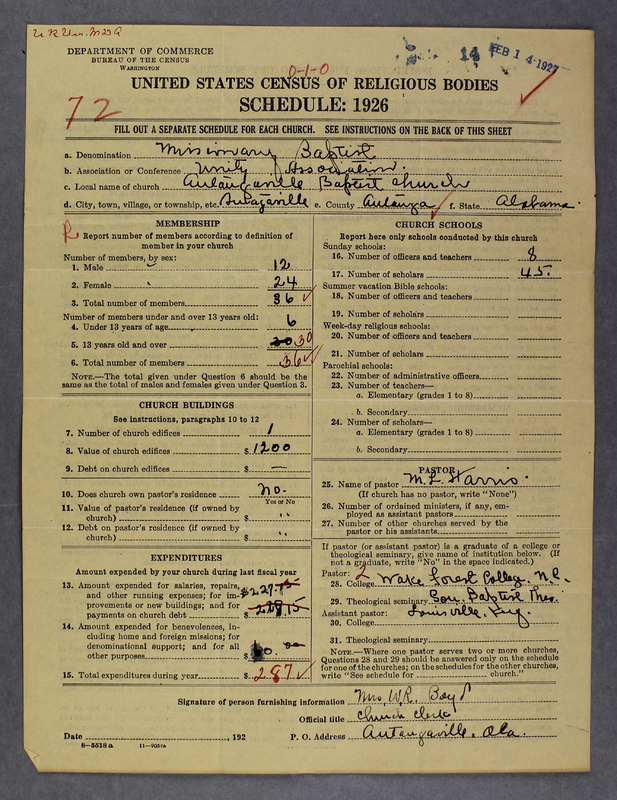 DEPARTMENT OF COMMERCE
BUREAU OF THE CENSUS
WASHINGTON
14 FEB 14 1927
0-1-0
UNITED STATES CENSUS OF RELIGIOUS BODIES
SCHEDULE: 1926
72
FILL OUT A SEPARATE SCHEDULE FOR EACH CHURCH. SEE INSTRUCTIONS ON THE BACK OF THIS SHEET
a. Denomination Missionary Baptist
b. Association or Conference Unity Association.
c. Local name of church Autaugaville Baptist Church
d. City, town, village, or township, etc. Autaugaville e. County Autauga f. State Alabama.
MEMBERSHIP
R Report number of members according to definition of
member in your church
Number of members, by sex:
1. Male 12
2. Female 24
3. Total number of members 36
Number of members under and over 13 years old:
4. Under 13 years of age 6
5. 13 years old and over 30 30
6. Total number of members 36
NOTE.—The total given under Question 6 should be the
same as the total of males and females given under Question 3.
CHURCH BUILDINGS
See instructions, paragraphs 10 to 12
7. Number of church edifices 1
8. Value of church edifices $ 1200
9. Debt on church edifices $ —
10. Does church own pastor's residence No.
Yes or No
11. Value of pastor's residence (if owned by
church) $ "
12. Debt on pastor's residence (if owned by
church) $ "
EXPENDITURES
Amount expended by your church during last fiscal year
13. Amount expended for salaries, repairs,
and other running expenses; for im-
provements or new buildings; and for
payments on church debt $ 227.15
14. Amount expended for benevolences, in-
cluding home and foreign missions; for
denominational support; and for all
other purposes $ 60.00
15. Total expenditures during year $ 287
CHURCH SCHOOLS
Report here only schools conducted by this church
Sunday schools:
16. Number of officers and teachers 8
17. Number of scholars 45.
Summer vacation Bible schools:
18. Number of officers and teachers
19. Number of scholars
Week-day religious schools:
20. Number of officers and teachers
21. Number of scholars
Parochial schools:
22. Number of administrative officers
23. Number of teachers—
a. Elementary (grades 1 to 8)
b. Secondary
24. Number of scholars—
a. Elementary (grades 1 to 8)
b. Secondary
PASTOR
25. Name of pastor M. L. Harris.
(If church has no pastor, write "None")
26. Number of ordained ministers, if any, em-
ployed as assistant pastors
27. Number of other churches served by the
pastor or his assistants
If pastor (or assistant pastor) is a graduate of a college or
theological seminary, give name of institution below. (If
not a graduate, write "No" in the space indicated.)
Pastor: 2
28. College Wake Forest College, N.C.
29. Theological seminary Sou. Baptist Theo.
Assistant pastor: Louisville, Ky.
30. College
31. Theological seminary
NOTE.—Where one pastor serves two or more churches,
Questions 28 and 29 should be answered only on the schedule
for one of the churches; on the schedules for the other churches,
write "See schedule for church."
Signature of person furnishing information Mrs. W.R. Boyd
Official title Church Clerk
Date , 192 P. O. Address Autaugaville, Ala.
8-5518 a 11-9051a